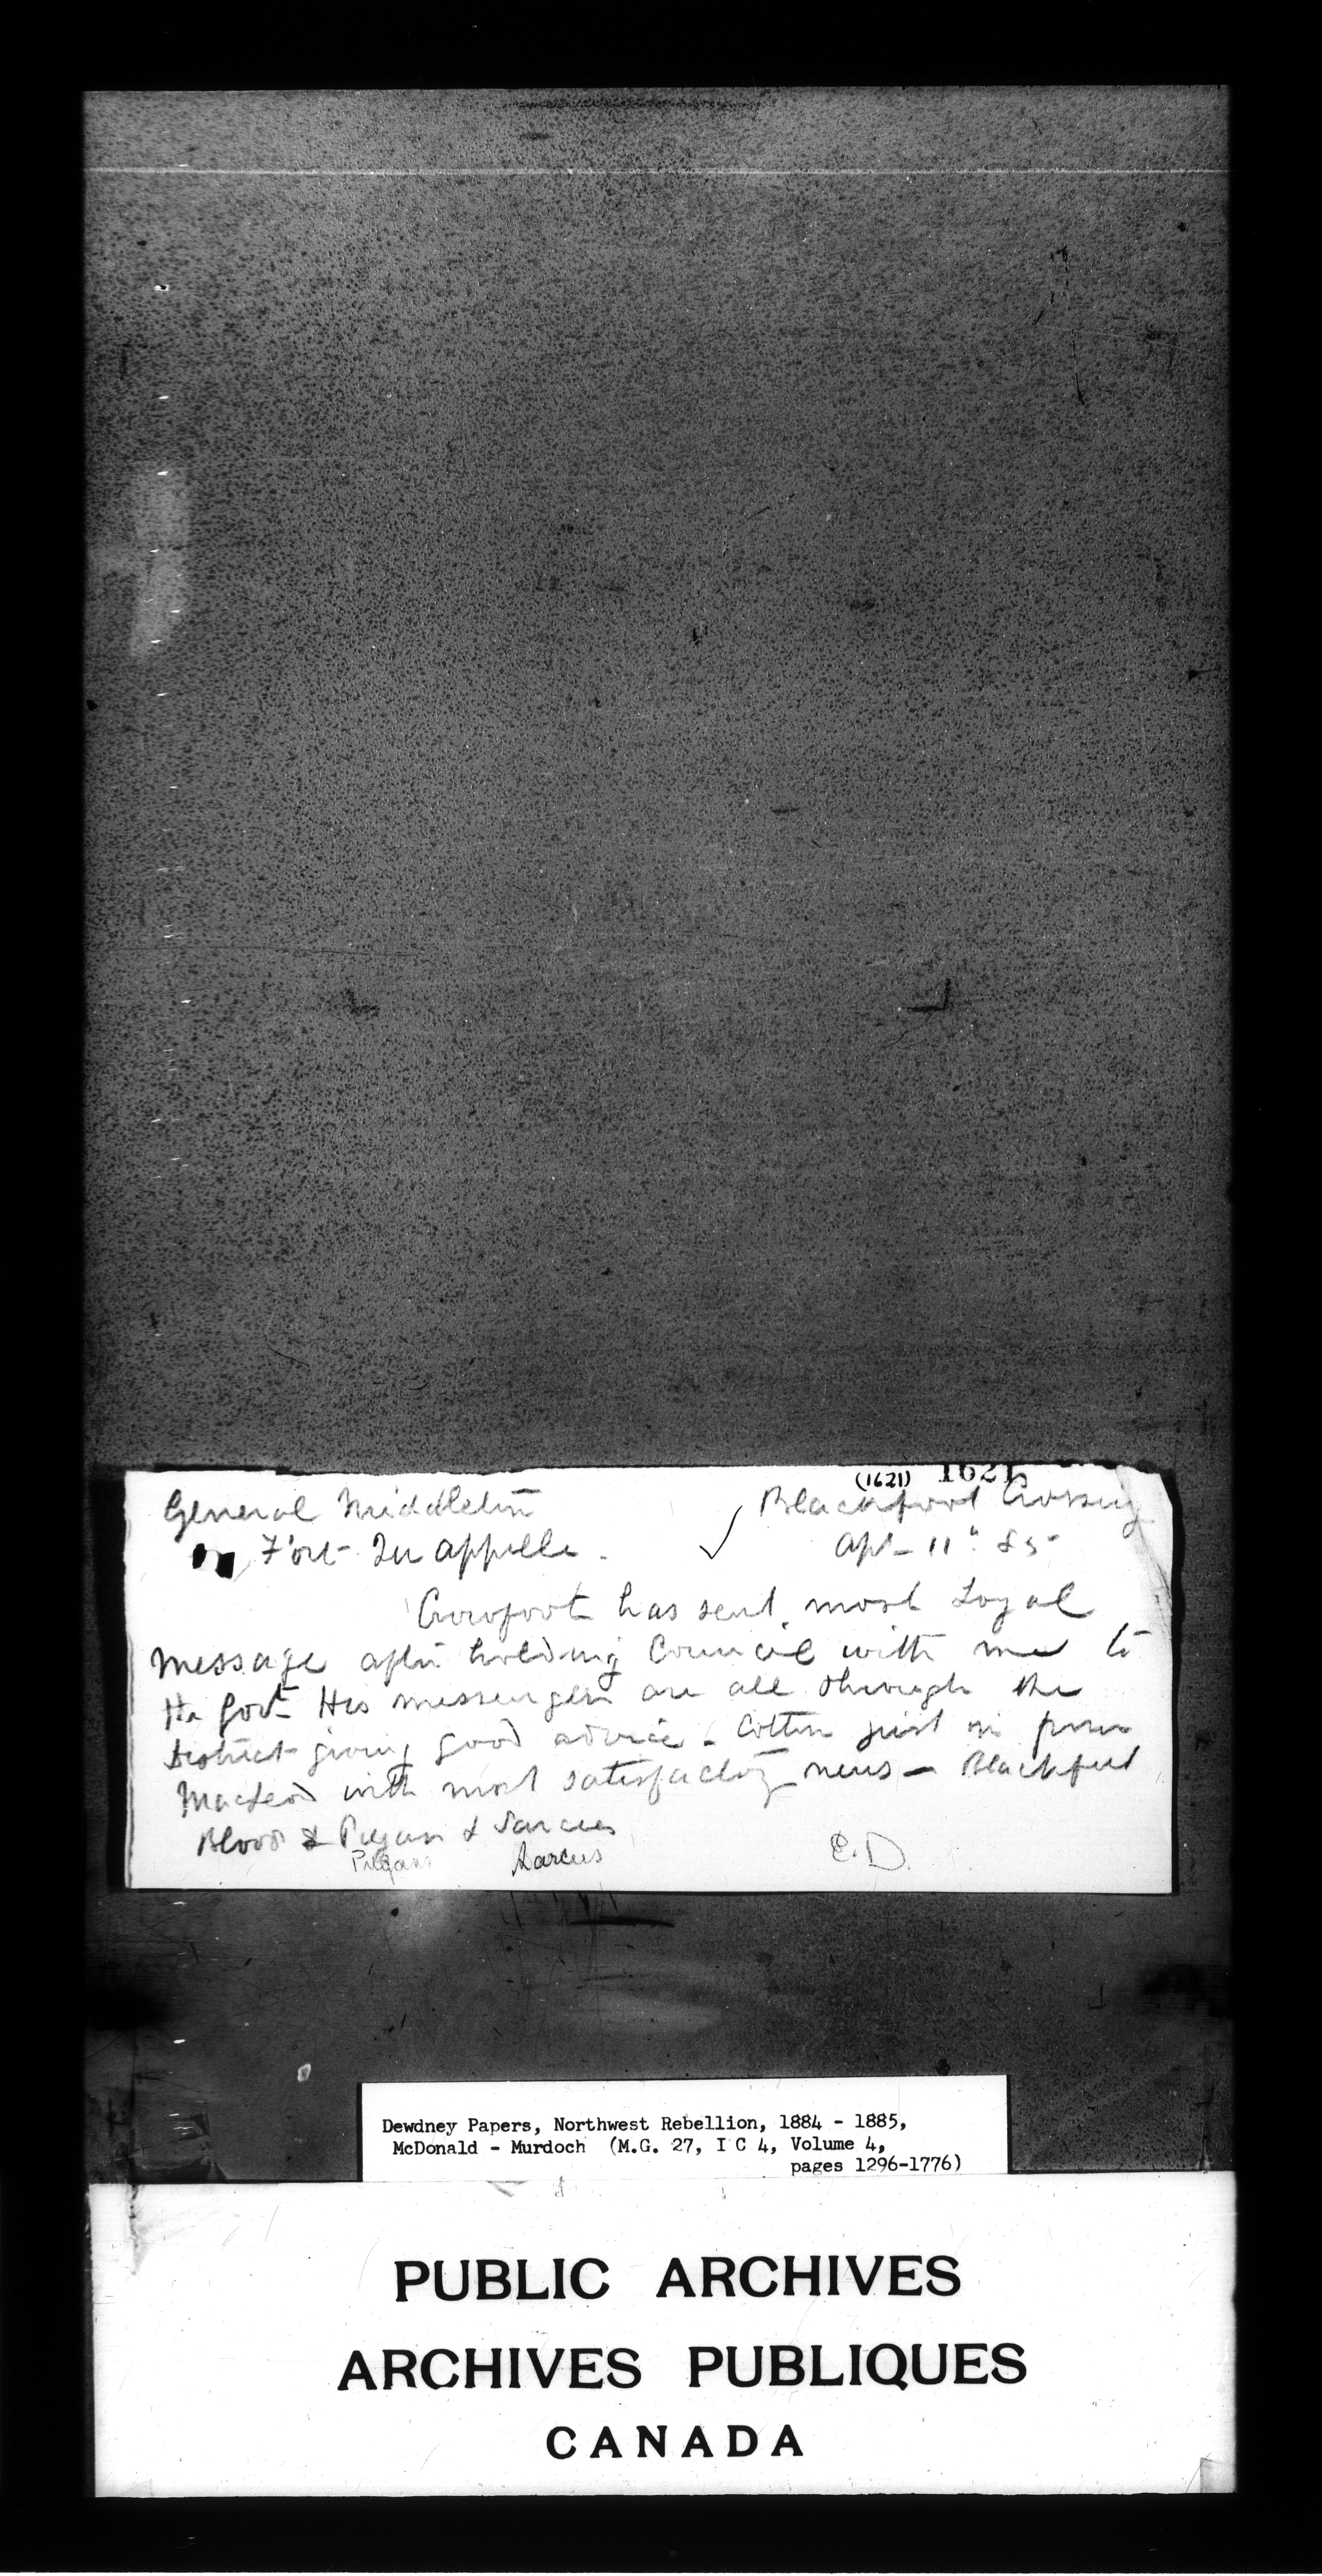 (1621) 1621
General Middleton
Blackfoot Crossing
Fort Qu appelle.
Apl - 11" 85
Crowfoot has sent most Loyal
message after holding Council with me to
the Govt His messengers are all through the
District giving good advice - Cotton just in from
Macleod with most satisfactory news - Blackfeet
Blood & Piegan & Sarcees
Piegans Sarcees
E.D.
Dewdney Papers, Northwest Rebellion, 1884 - 1885,
McDonald - Murdoch (M.G. 27, I C 4, Volume 4,
pages 1296-1776)
PUBLIC ARCHIVES
ARCHIVES PUBLIQUES
CANADA